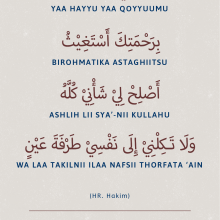 YAA HAYYU YAA QOYYUUMU
بِرَحْمَتِكَ أَسْتَغِيْثُ
BIROHMATIKA ASTAGHIITSU
أَصْلِحْ لِيْ شَأْنِيْ كُلَّهُ
ASHLIH LII SYA'-NII KULLAHU
وَلَا تَكِلْنِيْ إِلَى نَفْسِيْ طَرْفَةَ عَيْنٍ
WA LAA TAKILNII ILAA NAFSII THORFATA 'AIN
(HR. Hakim)